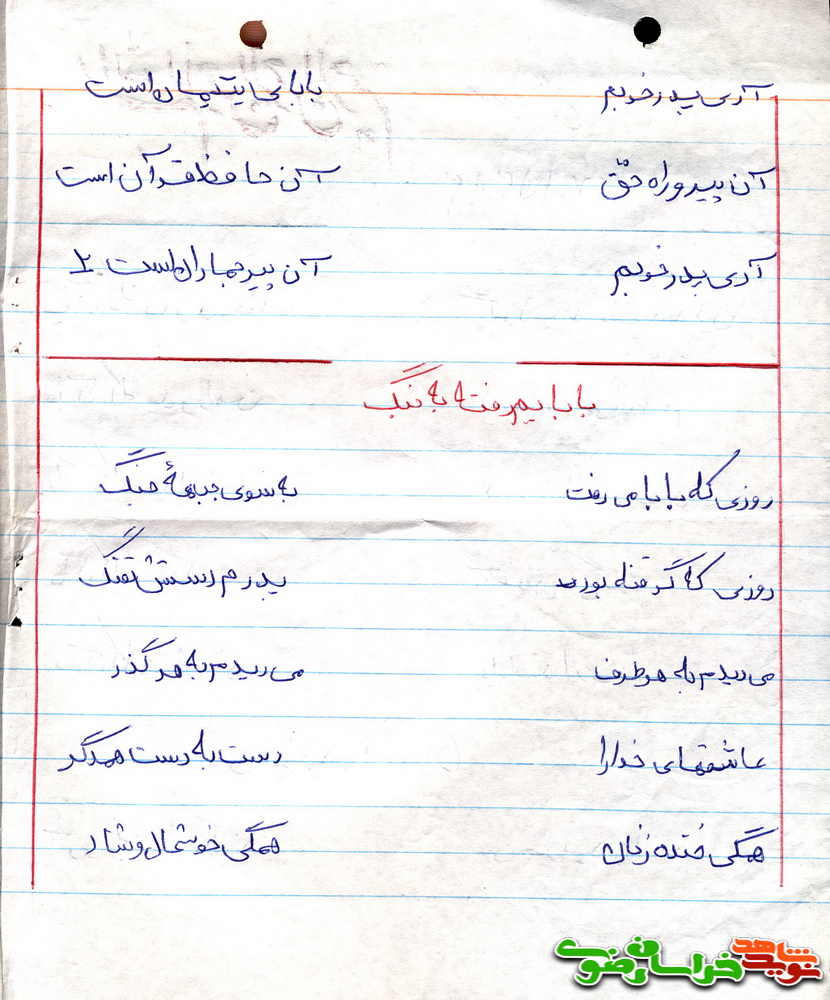 آری پدر خوبم بابای یتیمان است
آن پیرو راه حق آن حافظ قرآن است
آری پدر خوبم آن پیر جماران است
بابایم رفته به جنگ
روزی که بابا می رفت به سوی جبههٔ جنگ
روزی که گرفته بود پدرم دستش تفنگ
می دیدم به هر طرف می دیدم به هر گذر
عاشقهای خدا را دست به دست همدگر
همگی خنده زنان همگی خوشحال و شاد
نوید شاهد خراسان رضوی